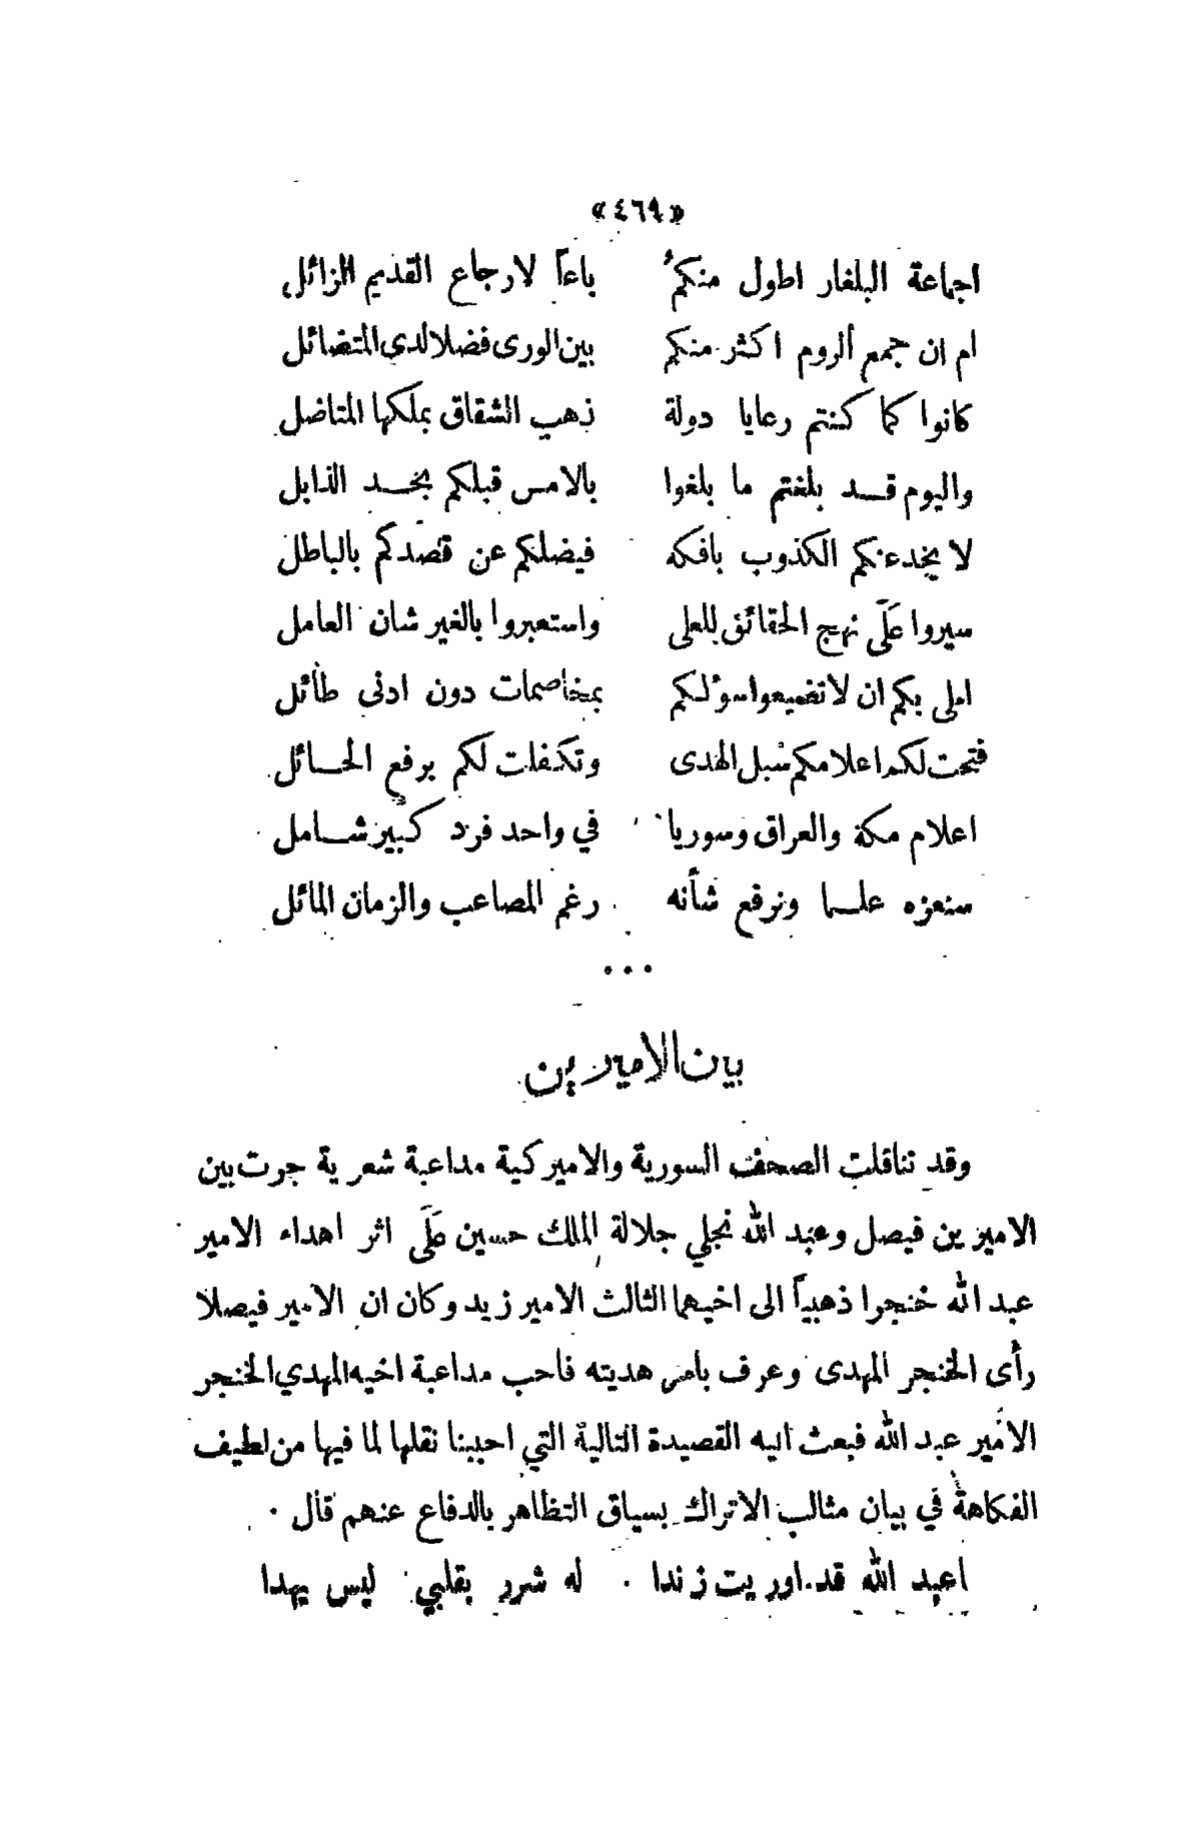 «٤٦٩»
اجماعة البلغار اطول منكمُ باعاً لارجاع القديم الزائل
ام ان جمع الروم اكثر منكم بين الورى فضلا لدى المتضائل
كانوا كما كنتم رعايا دولة ذهب الشقاق بملكها المتاضل
واليوم قد بلغتم ما بلغوا بالامس قبلكم بحد الذابل
لا يخدعنكم الكذوب بافكه فيضلكم عن قصدكم بالباطل
سيروا عَلَى نهج الحقائق للعلى واستعبروا بالغير شان العامل
املي بكم ان لا تضيعوا سؤلكم بمخاصمات دون ادنى طائل
فتحت لكم اعلامكم سبل الهدى وتكفلت لكم برفع الحائل
اعلام مكة والعراق وسوريا في واحد فرد كبير شامل
سنعزه علما ونرفع شأنه رغم المصاعب والزمان المائل
• • •
بين الاميرين
وقد تناقلت الصحف السورية والاميركية مداعبة شعرية جرت بين
الاميرين فيصل وعبد الله نجلي جلالة الملك حسين عَلَى اثر اهداء الامير
عبد الله خنجرا ذهبياً الى اخيهما الثالث الامير زيد وكان ان الامير فيصلا
رأى الخنجر المهدى وعرف بامر هديته فاحب مداعبة اخيه المهدي الخنجر
الامير عبد الله فبعث اليه القصيدة التالية التي احببنا نقلها لما فيها من لطيف
الفكاهة في بيان مثالب الاتراك بسياق التظاهر بالدفاع عنهم قال ٠
اعبد الله قد اوريت زندا له شرر بقلبي ليس يهدا